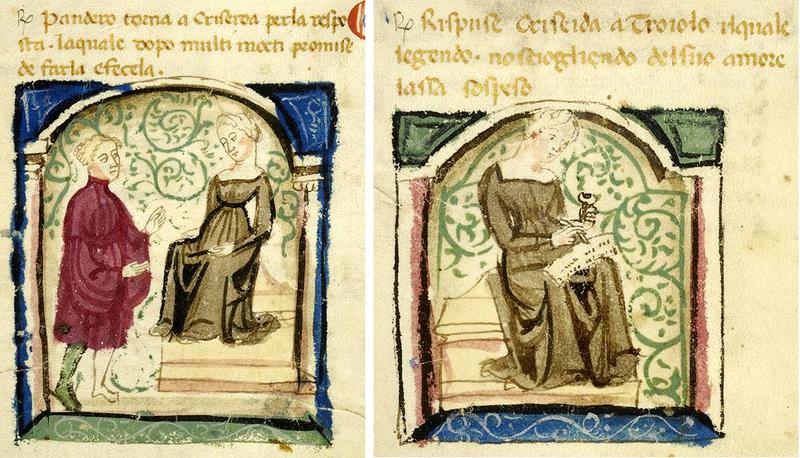 Pandero torna a Criseida perla respo
sta. laquale dopo multi mocti promise
de farla efecela.
Rispuse Criseida a Troiolo ilquale
legendo. nosciogliendo delsuo amore
lassa sospeso